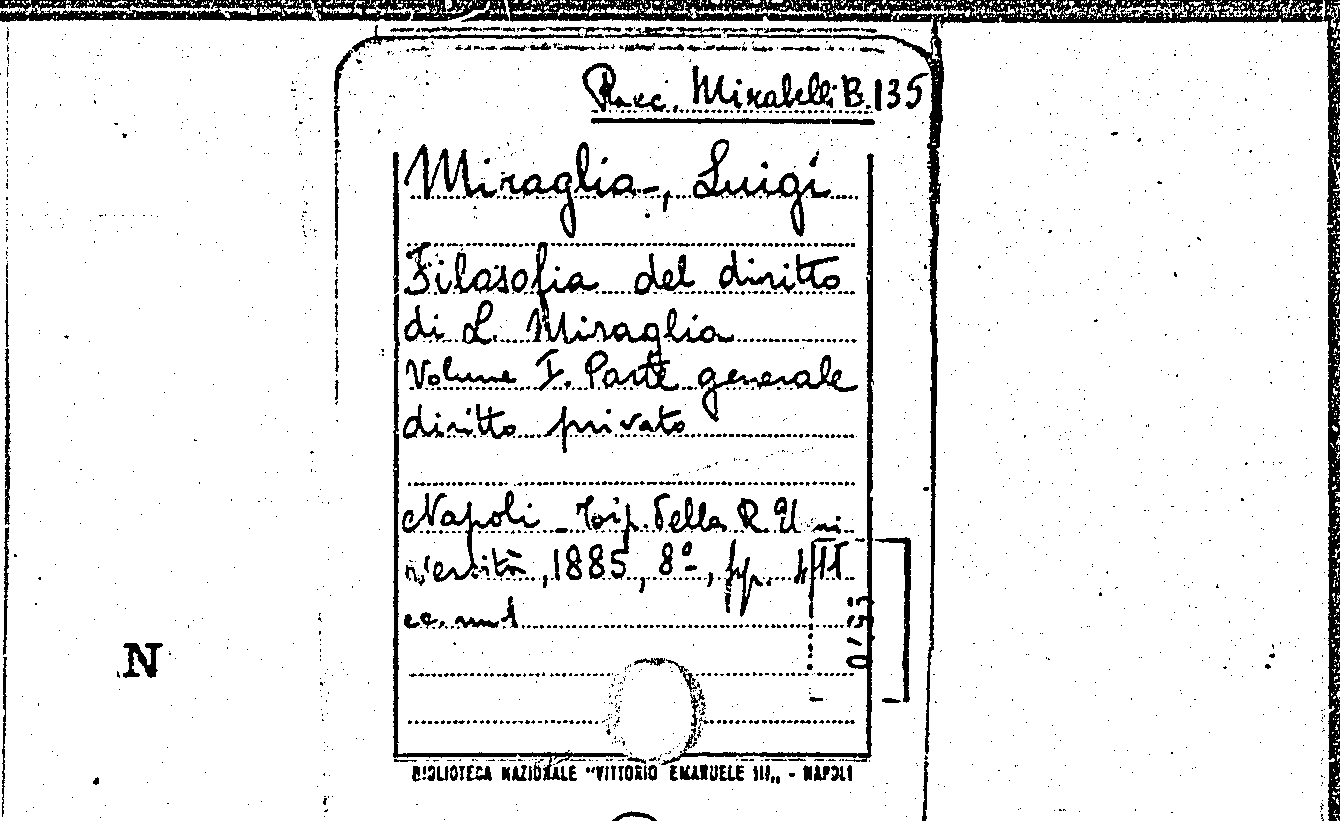 Racc. Mirabelli B 135
Miraglia, Luigi
Filosofia del diritto
di L. Miraglia
Volume I. Parte generale
diritto privato
Napoli Tip. della R. Uni
versità, 1885, 8º, pp.
N
BIBLIOTECA NAZIONALE "VITTORIO EMANUELE III„ - NAPOLI